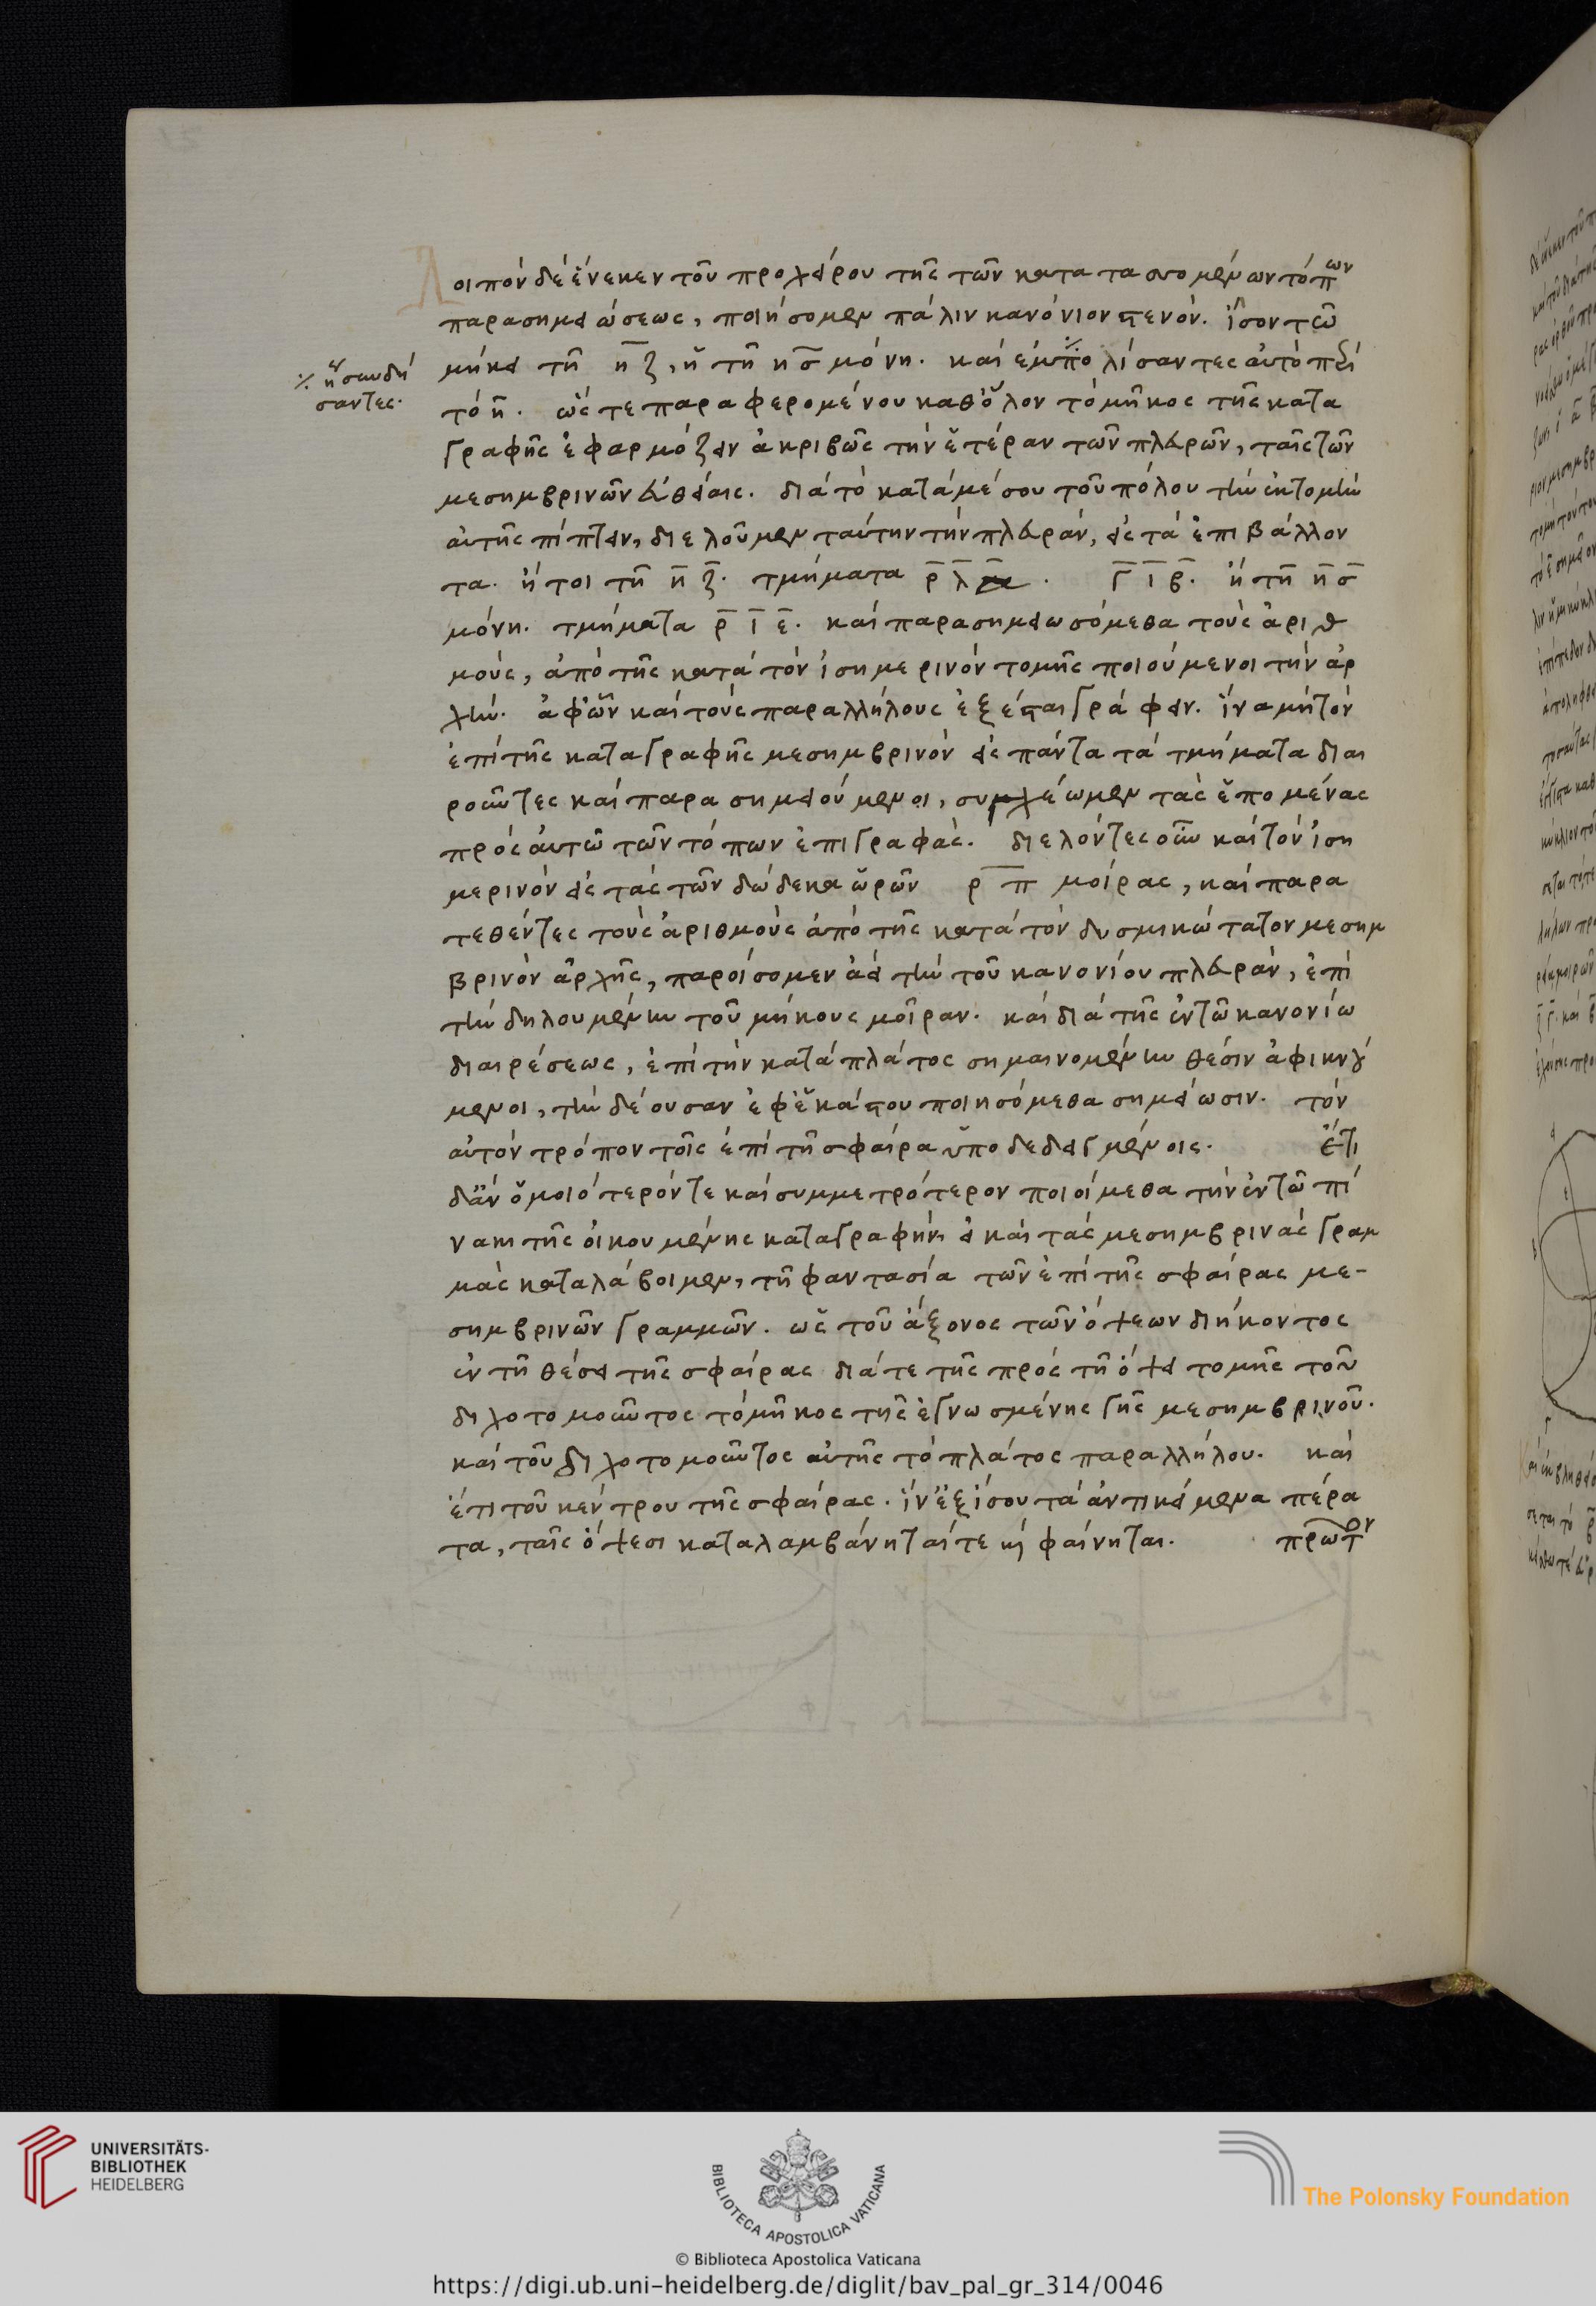 Λοιπὸν δὲ ἕνεκεν τοῦ προχείρου τῆς τῶν κατατασσομένων τόπων
παρασημειώσεως, ποιήσομεν πάλιν κανόνιον στενόν. ἴσον τῶ
μήκει τῆ η ζ, ἢ τῆ ησ μόνη. καὶ ἐμπολίσαντες αὐτὸ περὶ
⁒ ἢ συνδή
σαντες.
τὸ η. ὥστε παραφερομένου καθ ὅλον τὸ μῆκος τῆς κατα
γραφῆς ἐφαρμόζειν ἀκριβῶς τὴν ἑτέραν τῶν πλευρῶν, ταῖς τῶν
μεσημβρινῶν εὐθείαις. διὰ τὸ κατὰ μέσου τοῦ πόλου τὴν ἐκτομὴν
αὐτῆς πίπτειν, διελοῦμεν ταύτην τὴν πλευρὰν, εἰς τὰ ἐπιβάλλον
τα. ἤτοι τῆ η ζ. τμήματα ρ λ . Γ ι β. ἢ τῆ ησ
μόνη. τμήματα ρ ι ε. καὶ παρασημειωσόμεθα τοὺς ἀριθ
μοὺς, ἀπὸ τῆς κατὰ τὸν ἰσημερινὸν τομῆς ποιούμενοι τὴν ἀρ
χὴν. ἀφ ὧν καὶ τοὺς παραλλήλους ἐξέσται γράφειν. ἵνα μὴ τὸν
ἐπὶ τῆς καταγραφῆς μεσημβρινὸν εἰς πάντα τὰ τμήματα διαι
ροῦντες καὶ παρασημειούμενοι, συγχέωμεν τὰς ἑπομένας
πρὸς αὐτῶ τῶν τόπων ἐπιγραφάς. διελόντες οὖν καὶ τὸν ἰση
μερινὸν εἰς τὰς τῶν δώδεκα ὡρῶν ρ π μοίρας, καὶ παρα
τεθέντες τοὺς ἀριθμοὺς ἀπὸ τῆς κατὰ τὸν δυσμικώτατον μεσημ
βρινὸν ἀρχῆς, παροίσομεν ἀεὶ τὴν τοῦ κανονίου πλευρὰν, ἐπὶ
τὴν δηλουμένην τοῦ μήκους μοῖραν. καὶ διὰ τῆς ἐν τῶ κανονίω
διαιρέσεως, ἐπὶ τὴν κατὰ πλάτος σημαινομένην θέσιν ἀφικνού
μενοι, τὴν δέουσαν ἐφ ἑκάστου ποιησόμεθα σημείωσιν. τὸν
αὐτὸν τρόπον τοῖς ἐπὶ τῆ σφαίρα ὑποδεδειγμένοις. ἔτι
δ ἂν ὁμοιότερόν τε καὶ συμμετρότερον ποιοίμεθα τὴν ἐν τῶ πί
νακι τῆς οἰκουμένης καταγραφὴν εἰ καὶ τὰς μεσημβρινὰς γραμ
μὰς καταλάβοιμεν, τῆ φαντασία τῶν ἐπὶ τῆς σφαίρας με-
σημβρινῶν γραμμῶν. ὡς τοῦ ἄξονος τῶν ὄψεων διήκοντος
ἐν τῆ θέσει τῆς σφαίρας διά τε τῆς πρὸς τῆ ὄψει τομῆς τοῦ
διχοτομοῦντος τὸ μῆκος τῆς ἐγνωσμένης γῆς μεσημβρινοῦ.
καὶ τοῦ διχοτομοῦντος αὐτῆς τὸ πλάτος παραλλήλου. καὶ
ἔτι τοῦ κέντρου τῆς σφαίρας. ἵν ἐξίσου τὰ ἀντικείμενα πέρα
τα, ταῖς ὄψεσι καταλαμβάνηταί τε καὶ φαίνηται. πρῶτον
UNIVERSITÄTS-
BIBLIOTHEK
HEIDELBERG
BIBLIOTECA APOSTOLICA VATICANA
© Biblioteca Apostolica Vaticana
The Polonsky Foundation
https://digi.ub.uni-heidelberg.de/diglit/bav_pal_gr_314/0046